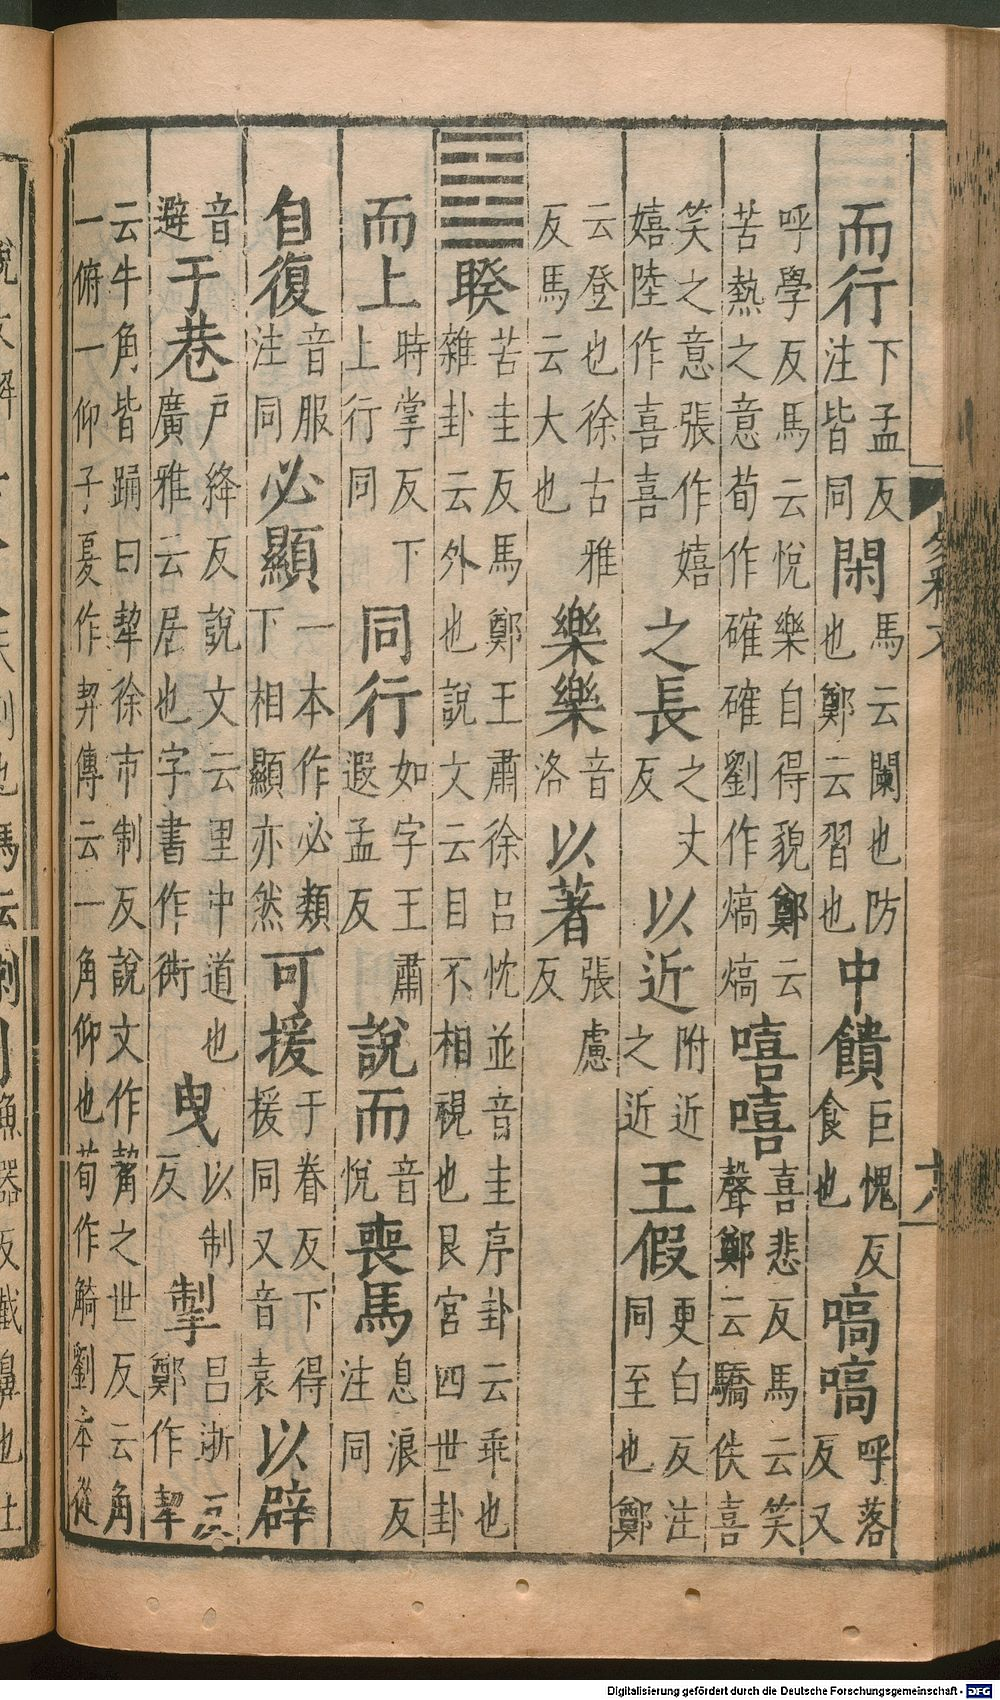 而行下孟反注皆同閑馬云闌也防也鄭云習也中饋巨愧反食也嗃嗃呼落反又
呼學反馬云悅樂自得貌鄭云苦熱之意荀作確確劉作熇熇嘻嘻喜悲反馬云笑聲鄭云驕佚喜
笑之意張作嬉嬉陸作喜喜之長之丈反以近附近之近王假更白反注同至也鄭
云登也徐古雅反馬云大也樂樂音洛以著張慮反
䷥睽苦圭反馬鄭王肅徐呂忱並音圭序卦云乖也雜卦云外也說文云目不相視也艮宮四世卦
而上時掌反下上行同同行如字王肅遐孟反說而音悅喪馬息浪反注同
自復音服注同必顯一本作必類下相顯亦然可援于眷反下得援同又音袁以辟
音避于巷戶絳反說文云里中道也廣雅云居也字書作衖曳以制反掣昌浙反鄭作挈
云牛角皆踊曰挈徐市制反說文作觢之世反云角一俯一仰子夏作契傳云一角仰也荀作觭劉本從
周易釋文
Digitalisierung gefördert durch die Deutsche Forschungsgemeinschaft - DFG